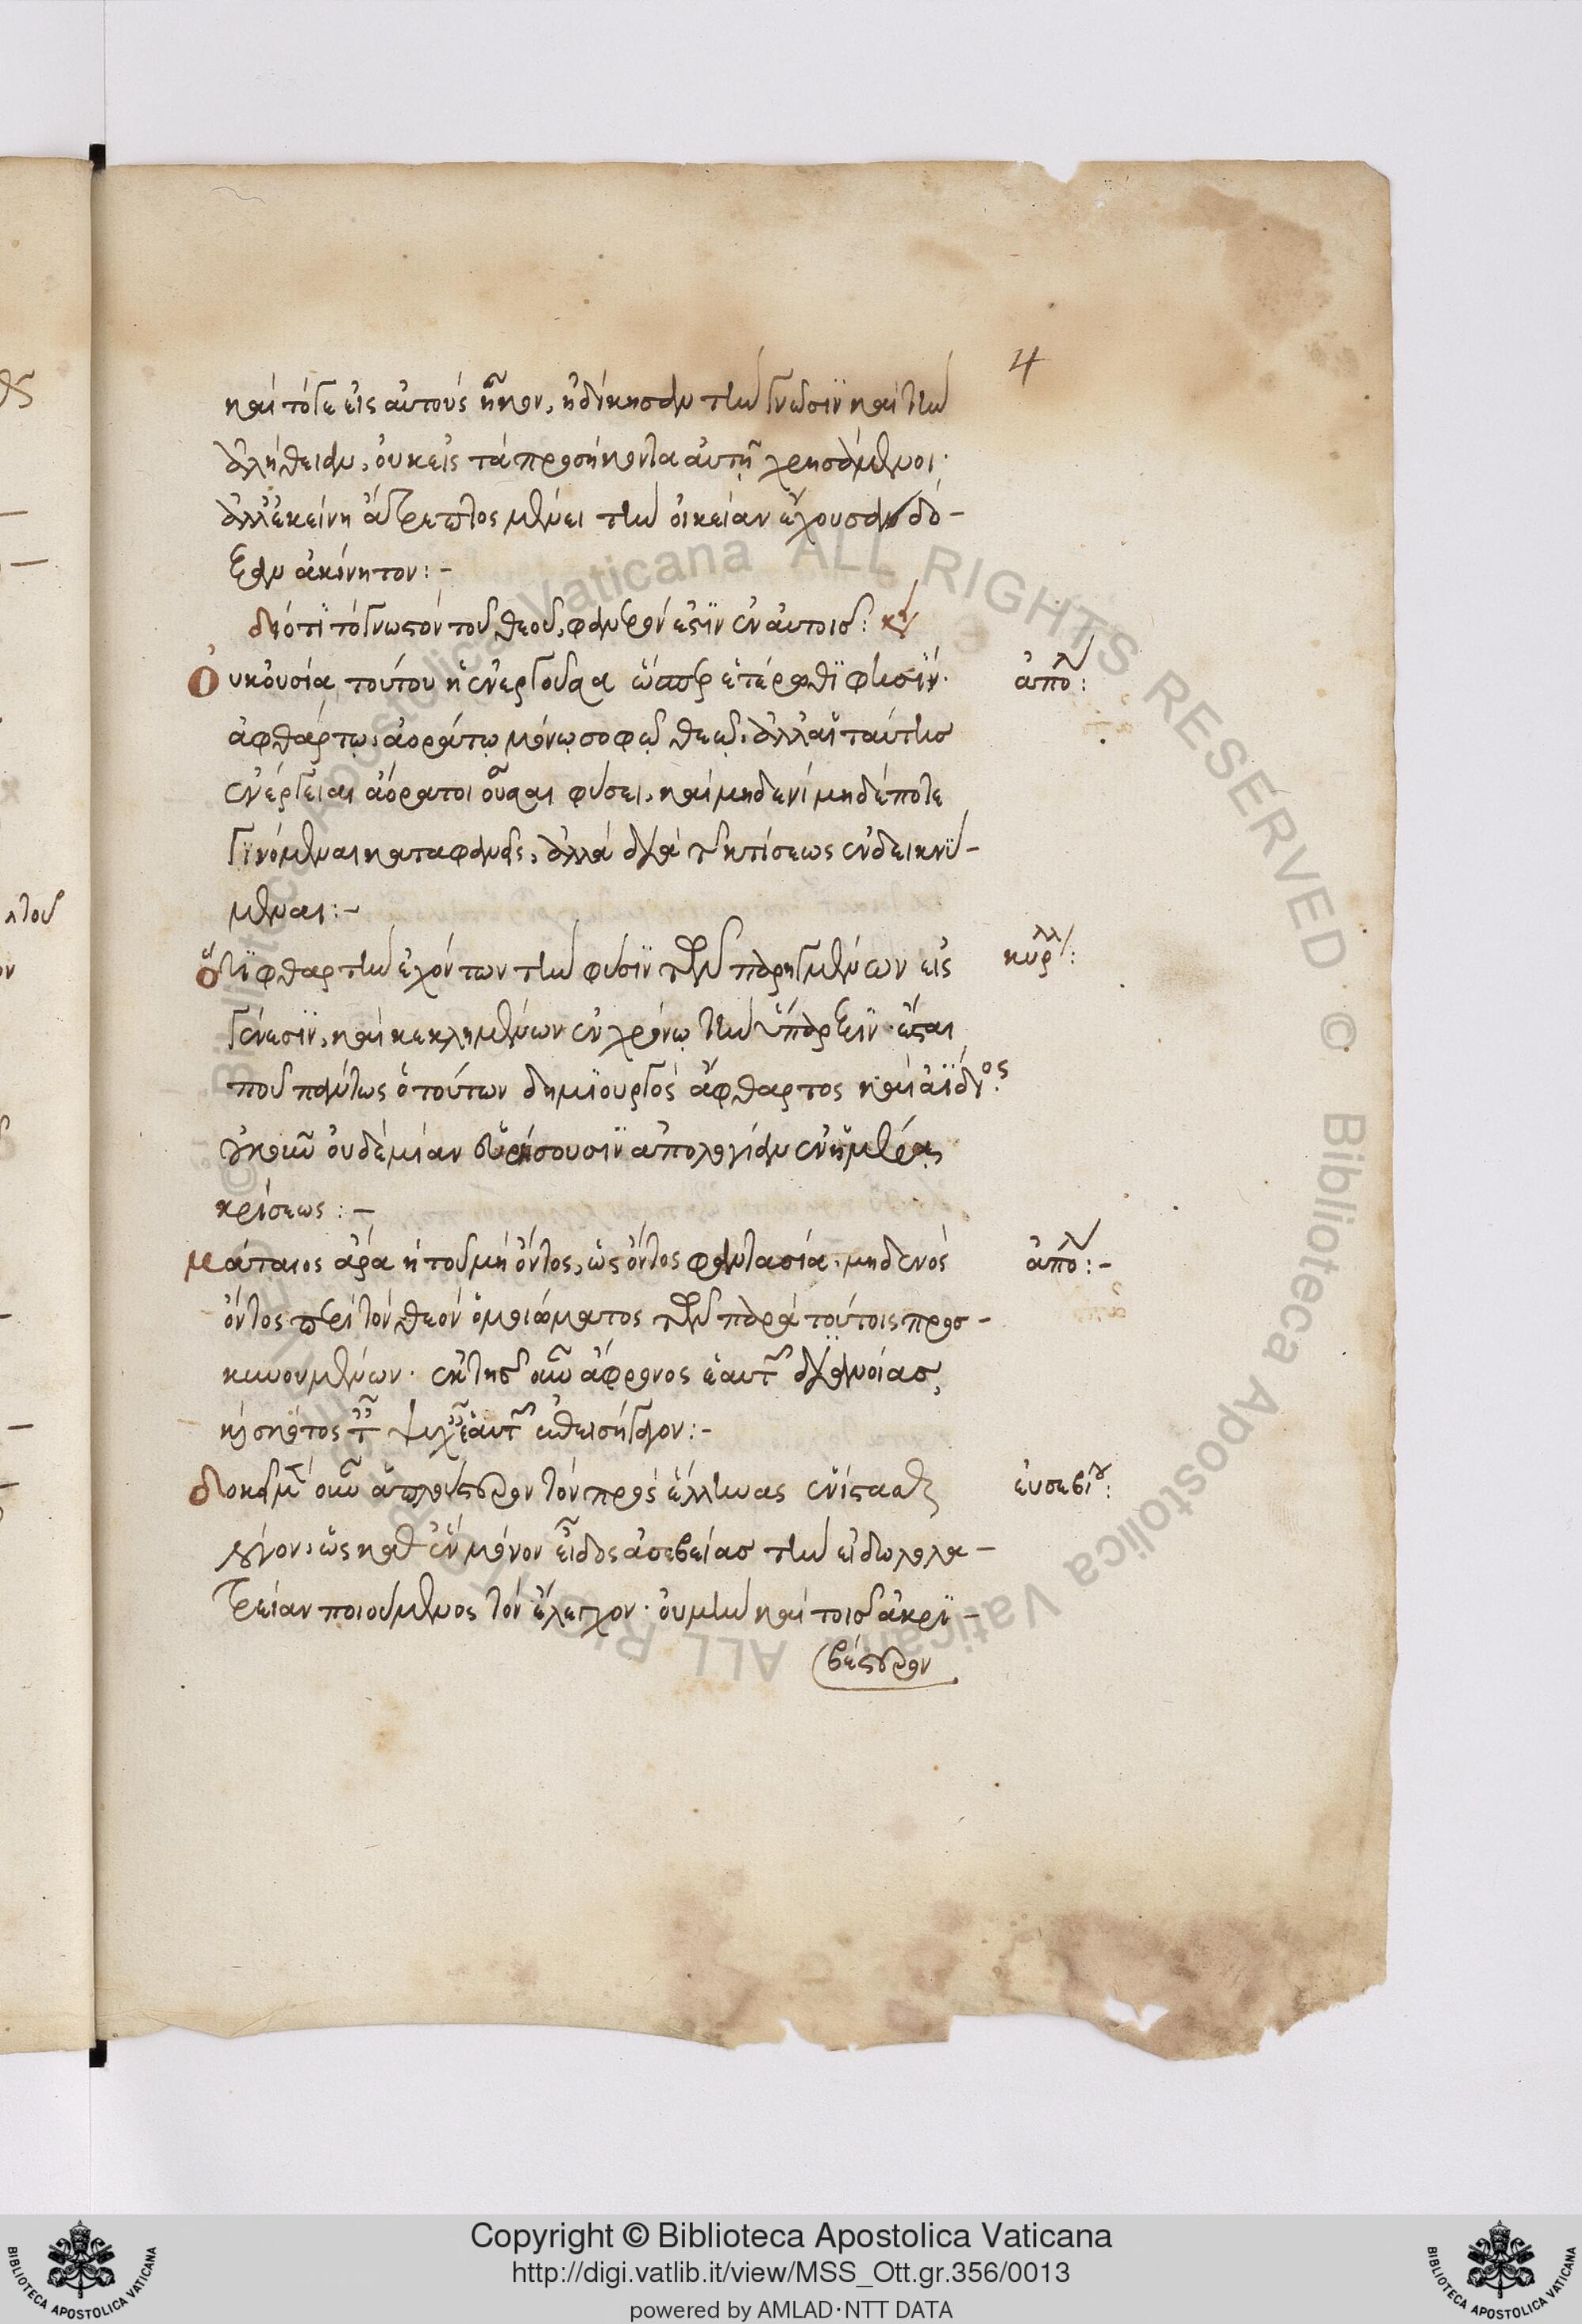 4
καί τότε εἰς αὐτούς ἧκον, ἠδίκησαν τὴν γνῶσιν καί τὴν
ἀλήθειαν, οὐκ εἰς τά προσήκοντα αὐτῇ χρησάμενοι·
ἀλλ' ἐκείνη ἄτρεπτος μένει τὴν οἰκείαν ἔχουσαν δό-
ξαν ἀκίνητον:-
διότι τό γνωστόν τοῦ θεοῦ, φανερόν ἐστϊν ἐν αὐτοις: κ
Οὐκ οὐσία τούτου ἡ ἐνεργοῦσα ὥσπερ ἑτέρωθϊ φησϊν· ἀπολ:
ἀφθάρτῳ, ἀοράτῳ μόνῳ σοφῷ θεῷ, ἀλλ' αἱ ταύτης
ἐνέργειαι ἀόρατοι οὖσαι φύσει, καί μηδενί μηδέποτε
γϊνόμεναι καταφανεῖς, ἀλλά διά τῆς κτίσεως ἐνδεικνΰ-
μεναι:-
ὅτϊ φθαρτὴν ἐχόντων τὴν φύσϊν τῶν παρηγμένων εἰς κυρλλ:
γένεσϊν, καί κεκλημένων ἐν χρόνῳ τὴν ὕπαρξιν· ἔσται
που πάντως ὁ τούτων δημϊουργός ἄφθαρτος καί ἀΐδιος·
οὐκοῦν οὐδεμίαν εὑρήσουσιν ἀπολογίαν ἐν ἡμέρᾳ
κρίσεως:-
μάταιος ἄρα ἡ τοῦ μή ὄντος, ὡς ὄντος φαντασία· μηδενός ἀπολ:-
ὄντος περί τόν θεόν ὁμοιώματος τῶν παρά τούτοις προσ-
κυνουμένων· ἐκ τῆς οὖν ἄφρονος ἑαυτῶν διανοίας,
καί σκότος τῇ ψυχῇ ἑαυτῶν ἐπεισήγαγον:-
δοκεῖ μέντοι οὖν ἁπλούστερον τόν πρός ἕλληνας ἐνίστασθαι εὐσεβίου:
λόγον, ὡς καθ' ἕν μόνον εἶδος ἀσεβείας τὴν εἰδωλολα-
τρείαν ποιούμενος τόν ἔλεγχον· οὐ μὴν καί τοῖς ἀκρϊ-
βέστερον